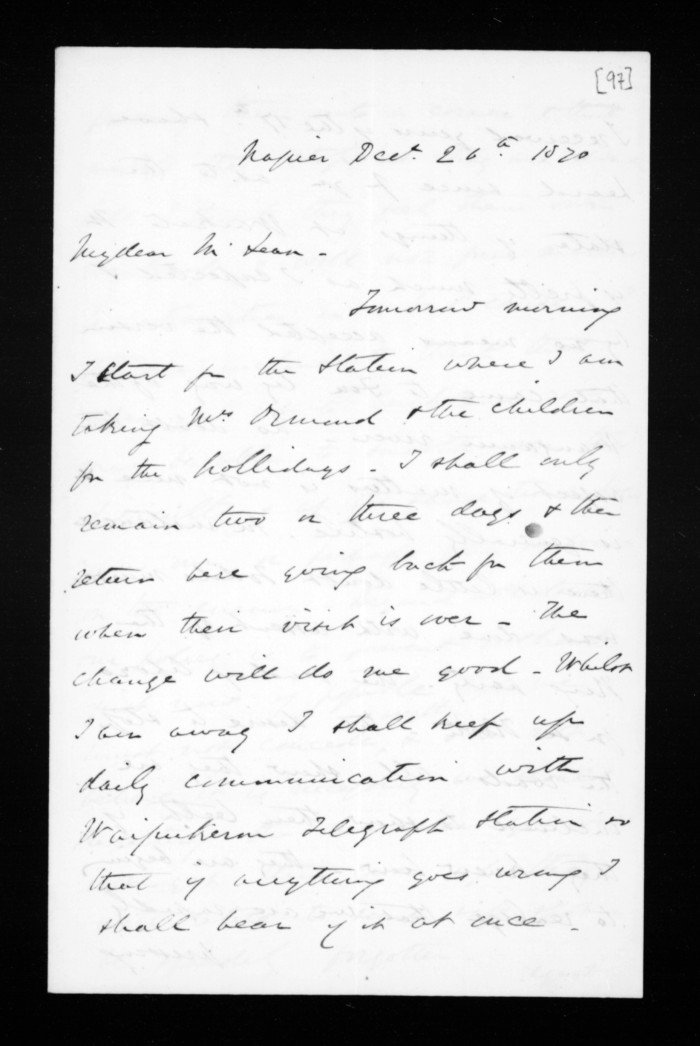 [97]
Napier Decr. 26th 1870
My dear McLean -
Tomorrow morning
I start for the Station where I am
taking Mrs Ormond & the children
for the hollidays - I shall only
remain two or three days & then
return here going back for them
when their visit is over - The
change will do me good - Whilst
I am away I shall keep up
daily communication with
Waipukerau Telegraph Station so
that if anything goes wrong I
shall hear of it at once -